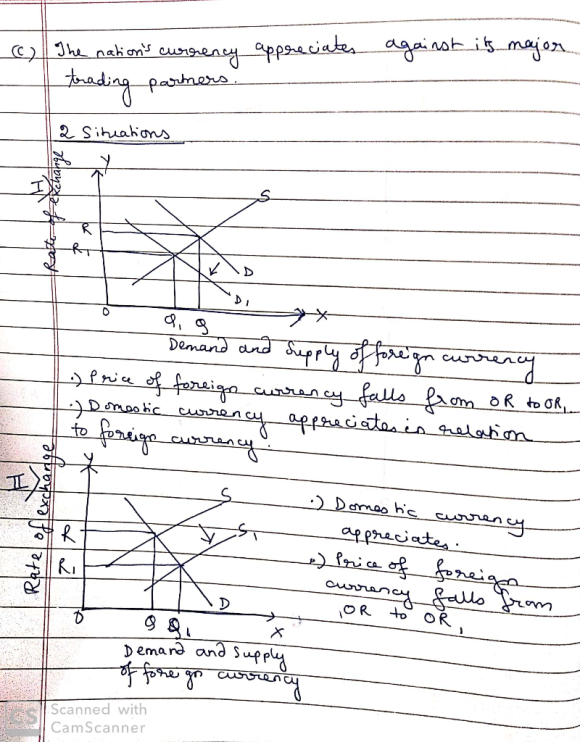 (c) The nation's currency appreciates against its major
trading partners.
2 Situations
I)
Rate of exchange
Y
S
R
R1
D
D1
O
Q1 Q
X
Demand and Supply of foreign currency
·) Price of foreign currency falls from OR to OR1.
·) Domestic currency appreciates in relation
to foreign currency.
II)
Rate of exchange
Y
S
S1
R
R1
D
O
Q Q1
X
Demand and Supply
of foreign currency
·) Domestic currency
appreciates.
·) Price of foreign
currency falls from
OR to OR1
CS
Scanned with
CamScanner